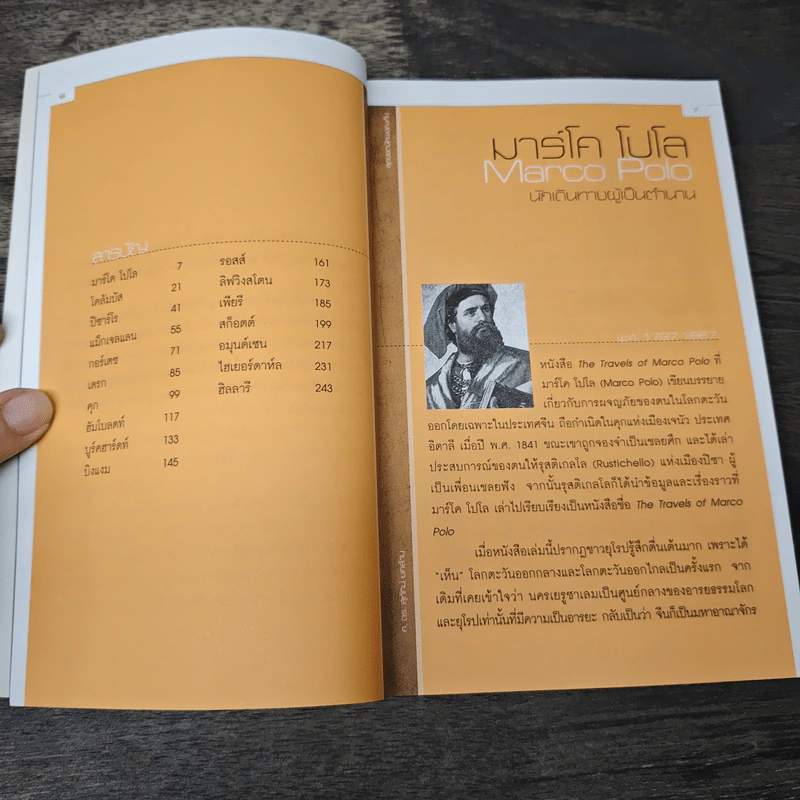 สารบัญ
มาร์โค โปโล 7
โคลัมบัส 21
ปิซาร์โร 41
แม็กเจลแลน 55
กอร์เตซ 71
เดรก 85
คุก 99
ฮัมโบลดท์ 117
บูร์คฮาร์ดท์ 133
บิงแงม 145
รอสส์ 161
ลิฟวิงสโตน 173
เพียรี 185
สก็อตต์ 199
อมุนด์เซน 217
ไฮเยอร์ดาห์ล 231
ฮิลลารี 243
มาร์โค โปโล
Marco Polo
นักเดินทางผู้เป็นตำนาน
พ.ศ. 1797-1867
หนังสือ The Travels of Marco Polo ที่
มาร์โค โปโล (Marco Polo) เขียนบรรยาย
เกี่ยวกับการผจญภัยของตนในโลกตะวัน
ออกโดยเฉพาะในประเทศจีน ถือกำเนิดในคุกแห่งเมืองเจนัว ประเทศ
อิตาลี เมื่อปี พ.ศ. 1841 ขณะเขาถูกจองจำเป็นเชลยศึก และได้เล่า
ประสบการณ์ของตนให้รุสติเกลโล (Rustichello) แห่งเมืองปิซา ผู้
เป็นเพื่อนเชลยฟัง จากนั้นรุสติเกลโลก็ได้นำข้อมูลและเรื่องราวที่
มาร์โค โปโล เล่าไปเรียบเรียงเป็นหนังสือชื่อ The Travels of Marco
Polo
เมื่อหนังสือเล่มนี้ปรากฏชาวยุโรปรู้สึกตื่นเต้นมาก เพราะได้
"เห็น" โลกตะวันออกกลางและโลกตะวันออกไกลเป็นครั้งแรก จาก
เดิมที่เคยเข้าใจว่า นครเยรูซาเลมเป็นศูนย์กลางของอารยธรรมโลก
และยุโรปเท่านั้นที่มีความเป็นอารยะ กลับเป็นว่า จีนก็เป็นมหาอาณาจักร
ศ. ดร. สุทัศน์ ยกส้าน